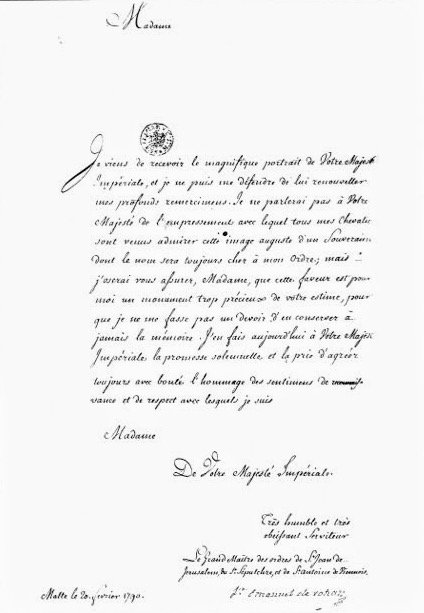 Madame
Je viens de recevoir le magnifique portrait de Votre Majesté
Impériale, et je ne puis me défendre de lui renouveller
mes profonds remercimens. Je ne parlerai pas à Votre
Majesté de l'empressement avec lequel tous mes Chevalie
sont venus admirer cette image auguste d'un Souverain
dont le nom sera toujours cher à mon Ordre; mais
j'oserai vous assurer, Madame, que cette faveur est pour
moi un monument trop précieux de votre estime, pour
que je ne me fasse pas un devoir d'en conserver à
jamais la mémoire. J'en fais aujourd'hui à Votre Majes
Impériale la promesse solemnelle et la prie d'agréer
toujours avec bonté l'hommage des sentimens de reconnais
sance et de respect avec lesquels je suis
Madame
De Votre Majesté Impériale
Très humble et très
obéissant Serviteur
Le Grand Maître des ordres de St Jean de
Jerusalem, du St Sepulchre, et de St Antoine de Viennois,
fr Emanuel de rohan
Malte le 20. février 1790.